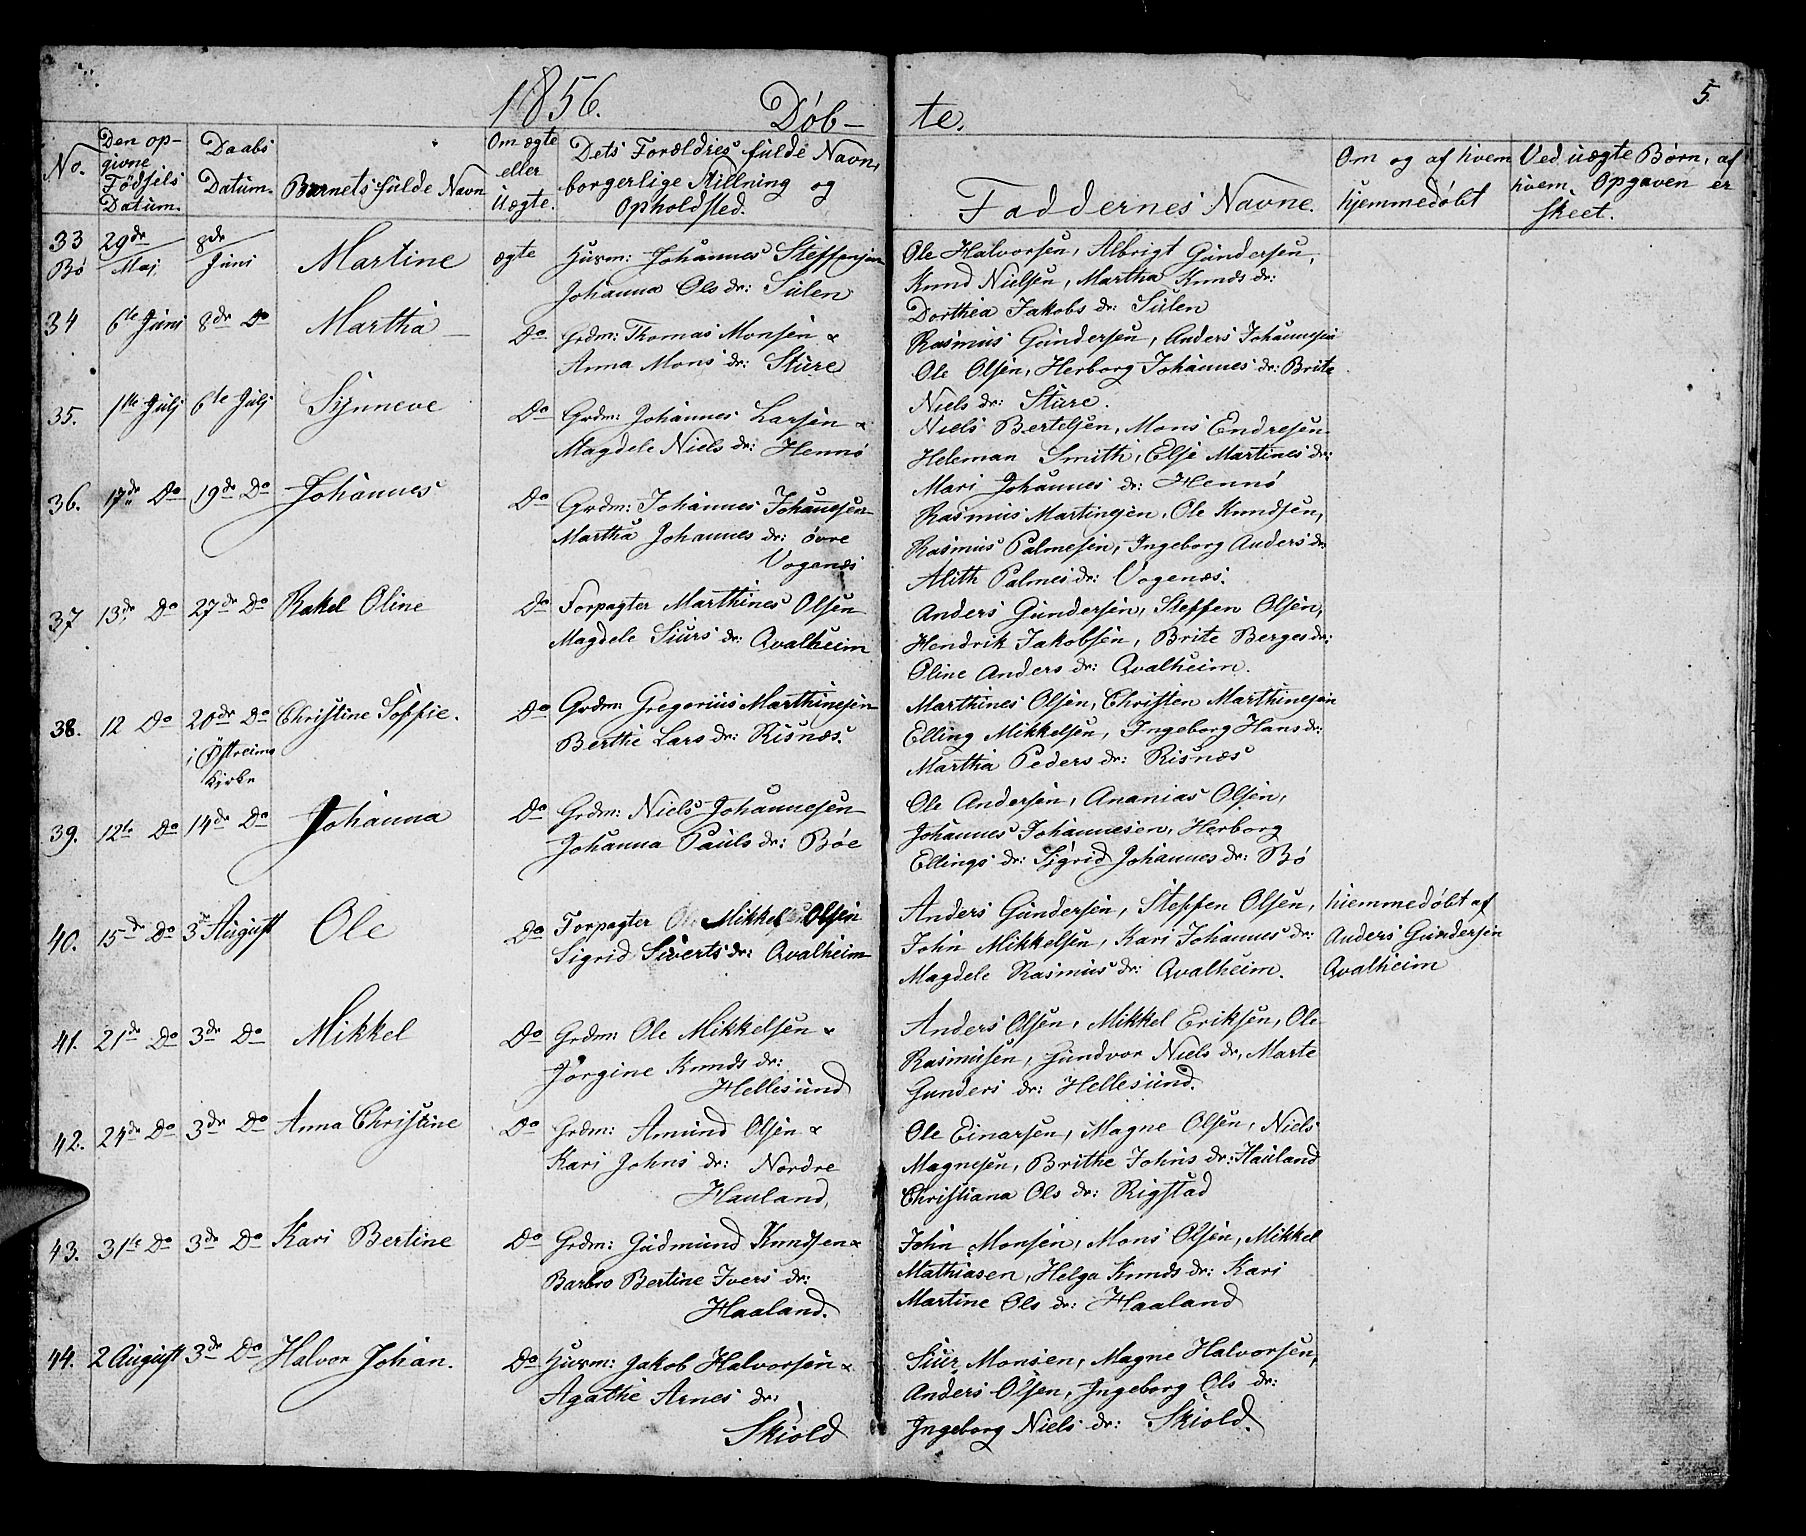 1856. Døb- te. 5.
No. Den op- givne Fødsels Datum. Daabs Datum. Barnets fulde Navn Om ægte eller uægte. Dets Forældres fulde Navn, borgerlige Stillning og Opholdsted. Faddernes Navne. Om og af hvem hjemmedøbt Ved uægte Børn, af hvem Opgaven er skeet.
33 Bø 29de Maj 8de Juni Martine ægte Huusm: Johannes Steffensen
Johanna Ols dr: Sulen
Ole Halvorsen, Albrigt Gundersen,
Knud Nielsen, Martha Knuds dr:
Dorthea Jakobs dr: Sulen
34 6te Juni 8de Do Martha Do Grdm: Thomas Monsen &
Anna Mons dr: Sture
Rasmus Gundersen, Anders Johannesen
Ole Olsen, Herborg Johannes dr: Brite
Niels dr: Sture.
35. 1ste Julj 6te Julj Synneve Do Grdm: Johannes Larsen &
Magdele Niels dr: Hennø
Niels Bertelsen, Mons Endresen
Heleman Smith, Else Martines dr:
Mari Johannes dr: Hennø
36. 17de Do 19de Do Johannes Do Grdm: Johannes Johannesen
Martha Johannes dr: øvre
Vogenæs
Rasmus Martinesen, Ole Knudsen,
Rasmus Palmesen, Ingeborg Anders dr
Alith Palmes dr: Vogenæs.
37 13de Do 27de Do Rakel Oline Do Forpagter Marthines Olsen
Magdele Siurs dr: Qvalheim
Anders Gundersen, Steffen Olsen,
Hendrik Jakobsen, Brite Berges dr:
Oline Anders dr: Qvalheim.
38. 12 Do 20de Do i Østreims Kirke Christine Soffie. Do Grdm: Gregorius Marthinesen
Berthe Lars dr: Risnæs.
Marthines Olsen, Christen Marthinesen
Elling Mikkelsen, Ingeborg Hans dr:
Martha Peders dr: Risnæs
39. 12te Do 14de Do Johanna Do Grdm: Niels Johannesen
Johanna Pauls dr: Bøe
Ole Andersen, Ananias Olsen,
Johannes Johannesen, Herborg
Ellings dr: Sigrid Johannes dr: Bø
40. 15de Do 3de August Ole Do Forpagter Mikkel Olsen
Sigrid Siverts dr: Qvalheim
Anders Gundersen, Steffen Olsen, hiemmedøbt af
John Mikkelsen, Kari Johannes dr: Anders Gundersen
Magdele Rasmus dr: Qvalheim. Qvalheim
41. 21de Do 3de Do Mikkel Do Grdm: Ole Mikkelsen &
Jørgine Knuds dr:
Hellesund
Anders Olsen, Mikkel Eriksen, Ole
Rasmusen, Gundvor Niels dr, Marte
Gunders dr: Hellesund.
42. 24de Do 3de Do Anna Christine Do Grdm: Amund Olsen &
Kari Johns dr: Nordre
Hauland,
Ole Einarsen, Magne Olsen, Niels
Magnesen, Brithe Johns dr: Hauland
Christiana Ols dr: Rigstad
43. 31te Do 3de Do Kari Bertine Do Grdm: Gudmund Knudsen &
Barbro Bertine Ivers dr:
Haaland.
John Monsen, Mons Olsen, Mikkel
Mathiasen, Helga Knuds dr: Kari
Martine Ols dr: Haaland
44. 2 August 3de Do Halvor Johan. Do Huusm: Jakob Halvorsen &
Agathe Arnes dr:
Skiold
Siur Monsen, Magne Halvorsen,
Anders Olsen, Ingeborg Ols dr:
Ingeborg Niels dr: Skiold.